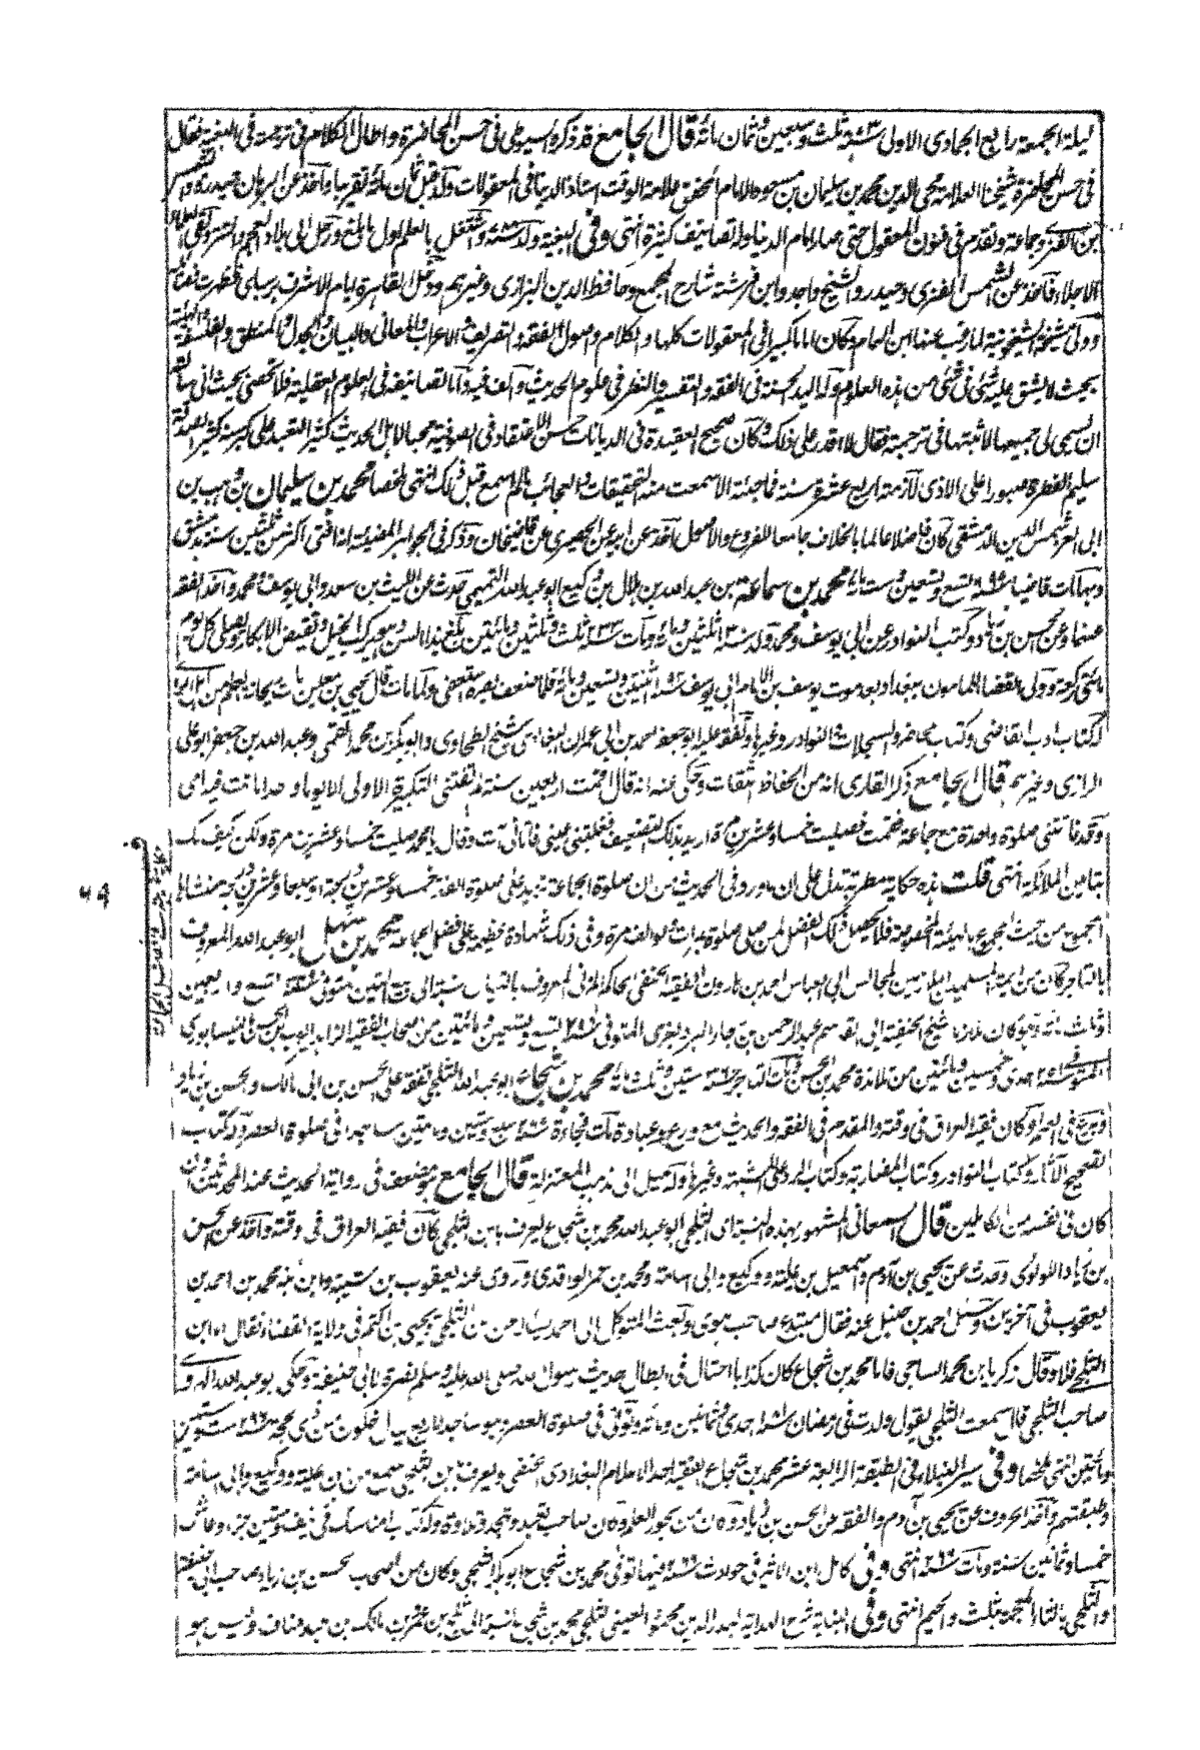 ليلة الجمعة رابع الجمادى الاولى سنة ٨٧٣ ثلث وسبعين وثمان مائة قال الجامع قد ذكره السيوطى فى حسن المحاضرة واطال الكلام فى ترجمته فى البغية فقال
فى حسن المحاضرة شيخنا العلامة محيى الدين محمد بن سليمان بن مسعود الامام المحقق علامة الوقت استاذ الدنيا فى المعقولات ولد قبل ثمان مائة تقريبا واخذ عن البرهان حيدرة والشمس
ابن الفنرى وجماعة وتقدم فى فنون المعقول حتى صار امام الدنيا وله تصانيف كثيرة انتهى وفى البغية ولد سنة واشتغل بالعلم اول ما بلغ ورحل الى بلاد العجم والتتر ولقى العلماء
الاجلاء فاخذ عن الشمس الفنرى وحيدر والشيخ واجد وابن فرشته شارح المجمع وحافظ الدين البزازى وغيرهم ودخل القاهرة ايام الاشرف برسباى فظهرت فضائله
وولى مشيخة الشيخونية لما رغب عنها ابن الهمام وكان اماما كبيرا فى المعقولات كلها والكلام واصول الفقه والتصريف والاعراب والمعانى والبيان والجدل والمنطق والفلسفة والهيئة
بحيث لا يشق عليه شئ فى شئ من هذه العلوم وله اليد الحسنة فى الفقه والتفسير والنظر فى علوم الحديث والف فيه واما تصانيفه فى العلوم العقلية فلا تحصى بحيث انى سالته
ان يسمى لى جميعها لاثبتها فى ترجمته فقال لا اقدر على ذلك وكان صحيح العقيدة فى الديانات حسن الاعتقاد فى الصوفية محبا لاهل الحديث كثير التعبد على كبر سنه كثير الصدقة
سليم الفطرة صبورا على الاذى لازمته اربع عشرة سنة فما جئته الا سمعت منه التحقيقات والعجائب ما لم اسمع قبل ذلك انتهى ملخصا محمد بن سليمان بن وهيب بن
ابى العز شمس الدين الدمشقى كان فاضلا عالما بالخلاف جامعا للفروع والاصول اخذ عن ابيه عن الحصيرى عن قاضيخان وذكر فى الجواهر المضيئة انه افتى اكثر من ثلثين سنة بدمشق
وبها مات قاضيا سنة ٦٩٩ تسع وتسعين وست مائة محمد بن سماعة بن عبد الله بن هلال بن وكيع ابو عبد الله التميمى حدث عن الليث بن سعد وابى يوسف ومحمد واخذ الفقه
عنهما وعن الحسن بن زياد وكتب النوادر عن ابى يوسف ومحمد ولد سنة ١٣٠ ثلثين ومائة ومات سنة ٢٣٣ ثلث وثلثين ومائتين بلغ هذا السن وهو يركب الخيل ويفتض الابكار ويصلى كل يوم
مائتى ركعة وولى القضا للمامون ببغداد بعد موت يوسف بن الامام ابى يوسف سنة ١٩٢ اثنتين وتسعين ومائة فلما ضعف بصره استعفى ولما مات قال يحيى بن معين مات ريحانة العلم من اهل الراى
له كتاب ادب القاضى وكتاب المحاضر والسجلات والنوادر وغيرها وتفقه عليه ابو جعفر احمد بن ابى عمران البغدادى شيخ الطحاوى وابو بكر بن محمد القمى وعبد الله بن جعفر ابو على
الرازى وغيرهم قال الجامع ذكر القارى انه من الحفاظ الثقات وحكى عنه انه قال اقمت اربعين سنة لم تفتنى التكبيرة الاولى الا يوما واحدا ماتت فيه امى
وقد فاتتنى صلوة واحدة مع جماعة فقمت فصليت خمسا وعشرين مرة اريد بذلك التضعيف فغلبتنى عينى فاتانى آت وقال يا محمد صليت خمسا وعشرين مرة ولكن كيف لك
بتامين الملائكة انتهى قلت هذه حكاية مطربة تدل على ان ما ورد فى الحديث من ان صلوة الجماعة تزيد على صلوة الفذ بخمس وعشرين درجة او سبعا وعشرين درجة منشاها
المجموع من حيث المجموع بالهيئة المخصوصة فلا يحصل ذلك الفضل لمن صلى صلوة مرات ولو الف مرة وفى ذلك شهادة عظيمة على فضل الجماعة محمد بن سهل ابو عبد الله المعروف
بالتاجر كان من ائمة المسلمين الملازمين لمجالس ابى العباس احمد بن هارون الفقيه الحنفى الحاكم المزنى المعروف بالتبان نسبة الى بيع التبن المتوفى سنة ٣٤٩ تسع واربعين
وثلث مائة وهو كان تلميذ شيخ الحنفية ابى القاسم عبد الرحمن بن رجاء البزديغرى المتوفى سنة ٢٩٩ تسع وتسعين ومائتين من اصحاب الفقيه الزاهد ايوب بن الحسن النيسابورى
المتوفى سنة ٢٥١ احدى وخمسين ومائتين من تلامذة محمد بن الحسن ومات التاجر سنة ٣٦٠ ستين وثلث مائة محمد بن شجاع ابو عبد الله الثلجى تفقه على الحسن بن ابى مالك والحسن بن زياد
وبرع فى العلم وكان فقيه العراق فى وقته والمقدم فى الفقه والحديث مع ورع وعبادة مات فجاءة سنة ٢٦٧ سبع وستين ومائتين ساجدا فى صلوة العصر وله كتاب
تصحيح الآثار وكتاب النوادر وكتاب المضاربة وكتاب الرد على المشبهة وغيرها وله ميل الى مذهب المعتزلة قال الجامع هو مضعف فى رواية الحديث عند المحدثين وان
كان فى نفسه من الكاملين قال السمعانى المشهور بهذه النسبة اى الثلجى ابو عبد الله محمد بن شجاع يعرف بابن الثلجى كان فقيه العراق فى وقته واخذ عن الحسن
بن زياد اللؤلؤى وحدث عن يحيى بن آدم واسمعيل بن علية ووكيع وابى اسامة ومحمد بن عمر الواقدى وروى عنه يعقوب بن شيبة وابن ابنه محمد بن احمد بن
يعقوب فى آخرين وسئل احمد بن حنبل عنه فقال مبتدع صاحب هوى وبعث المتوكل الى احمد يساله من بن الثلجى ويحيى بن اكثم فى ولاية القضاء فقال اما ابن
الثلجى فلا وقال زكريا بن محمد الساجى فاما محمد بن شجاع كان كذابا احتال فى ابطال حديث رسول الله صلى الله عليه وسلم نصرة لابى حنيفة وحكى ابو عبد الله الهروى
صاحب الثلجى قال سمعت الثلجى يقول ولدت فى رمضان سنة ١٨١ احدى وثمانين ومائة وتوفى فى صلوة العصر وهو ساجد لاربع ليال خلون من ذى الحجة سنة ٢٦٦ ست وستين
ومائتين انتهى ملخصا وفى سير النبلاء فى الطبقة الرابعة عشر محمد بن شجاع الفقيه احد الاعلام البغدادى الحنفى ويعرف بابن الثلجى سمع من ابن علية ووكيع وابى اسامة
وطبقتهم واخذ الحروف عن يحيى بن آدم والفقه عن الحسن بن زياد وكان من بحور العلم وكان صاحب تعبد وتهجد وتلاوة وله كتاب المناسك فى نيف وستين جزء وعاش
خمسا وثمانين سنة ومات سنة ٢٦٦ انتهى وفى كامل ابن الاثير فى حوادث سنة ٢٦٦ فيها توفى محمد بن شجاع ابو بكر الثلجى وكان من اصحاب الحسن بن زياد صاحب ابى حنيفة
والثلجى بالثاء المعجمة بثلث والجيم انتهى وفى البناية شرح الهداية لبدر الدين محمود العينى الثلجى محمد بن شجاع نسبة الى ثلج بن عمرو بن مالك بن عبد مناف وليس هو